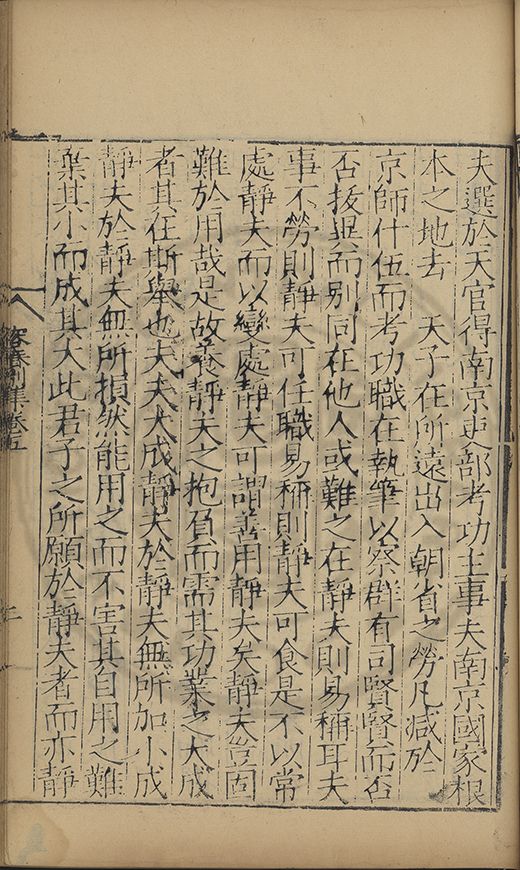 夫選於天官得南京吏部考功主事夫南京國家根
本之地去　天子在所遠出入朝省之勞凡減於
京師什伍而考功職在執筆以察群有司賢賢而否
否拔異而別同在他人或難之在靜夫則易稱耳夫
事不勞則靜夫可任職易稱則靜夫可食是不以常
處靜夫而以變處靜夫可謂善用靜夫矣靜夫豈固
難於用哉是故養靜夫之抱負而需其功業之大成
者其在斯舉也夫夫大成靜夫於靜夫無所加小成
靜夫於靜夫無所損然能用之而不害其自用之難
棄其小而成其大此君子之所願於靜夫者而亦靜
容春別集卷五